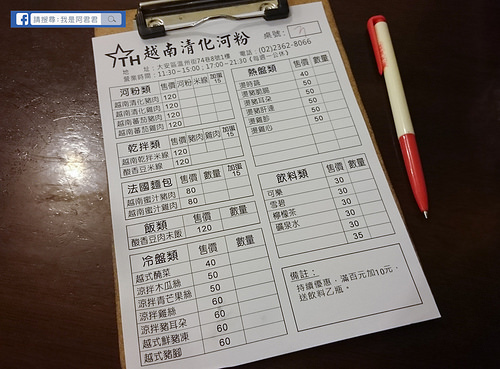 請搜尋:我是阿君君
TH 越南清化河粉
桌號:
地 址:大安區溫州街74巷8號1樓 電話:(02)2362-8066
營業時間:11:30~15:00;17:00~21:30 (每週一公休)
河粉類 售價 河粉 米線 加蛋15
越南清化豬肉 120
越南清化雞肉 120
越南蕃茄豬肉 120
越南蕃茄雞肉 120
乾拌類 售價 豬肉 雞肉 加蛋15
越南乾拌米線 120
酸香豆米線 120
法國麵包 售價 數量 加蛋15
越南蜜汁豬肉 80
越南蜜汁雞肉 80
飯類 售價 數量
酸香豆肉末飯 120
冷盤類 售價 數量
越式醃菜 40
涼拌木瓜絲 50
涼拌青芒果絲 60
涼拌雞絲 60
涼拌豬耳朵 60
越式鮮豬凍 60
越式豬腳 60
熱盤類 售價 數量
燙時蔬 40
燙豬脆腸 50
燙豬耳朵 50
燙豬肝連 50
燙雞胗 50
燙雞心 50
飲料類 售價 數量
可樂 30
雪碧 30
檸檬茶 30
礦泉水 30
35
備註:
持續優惠,滿百元加10元,
送飲料乙瓶。